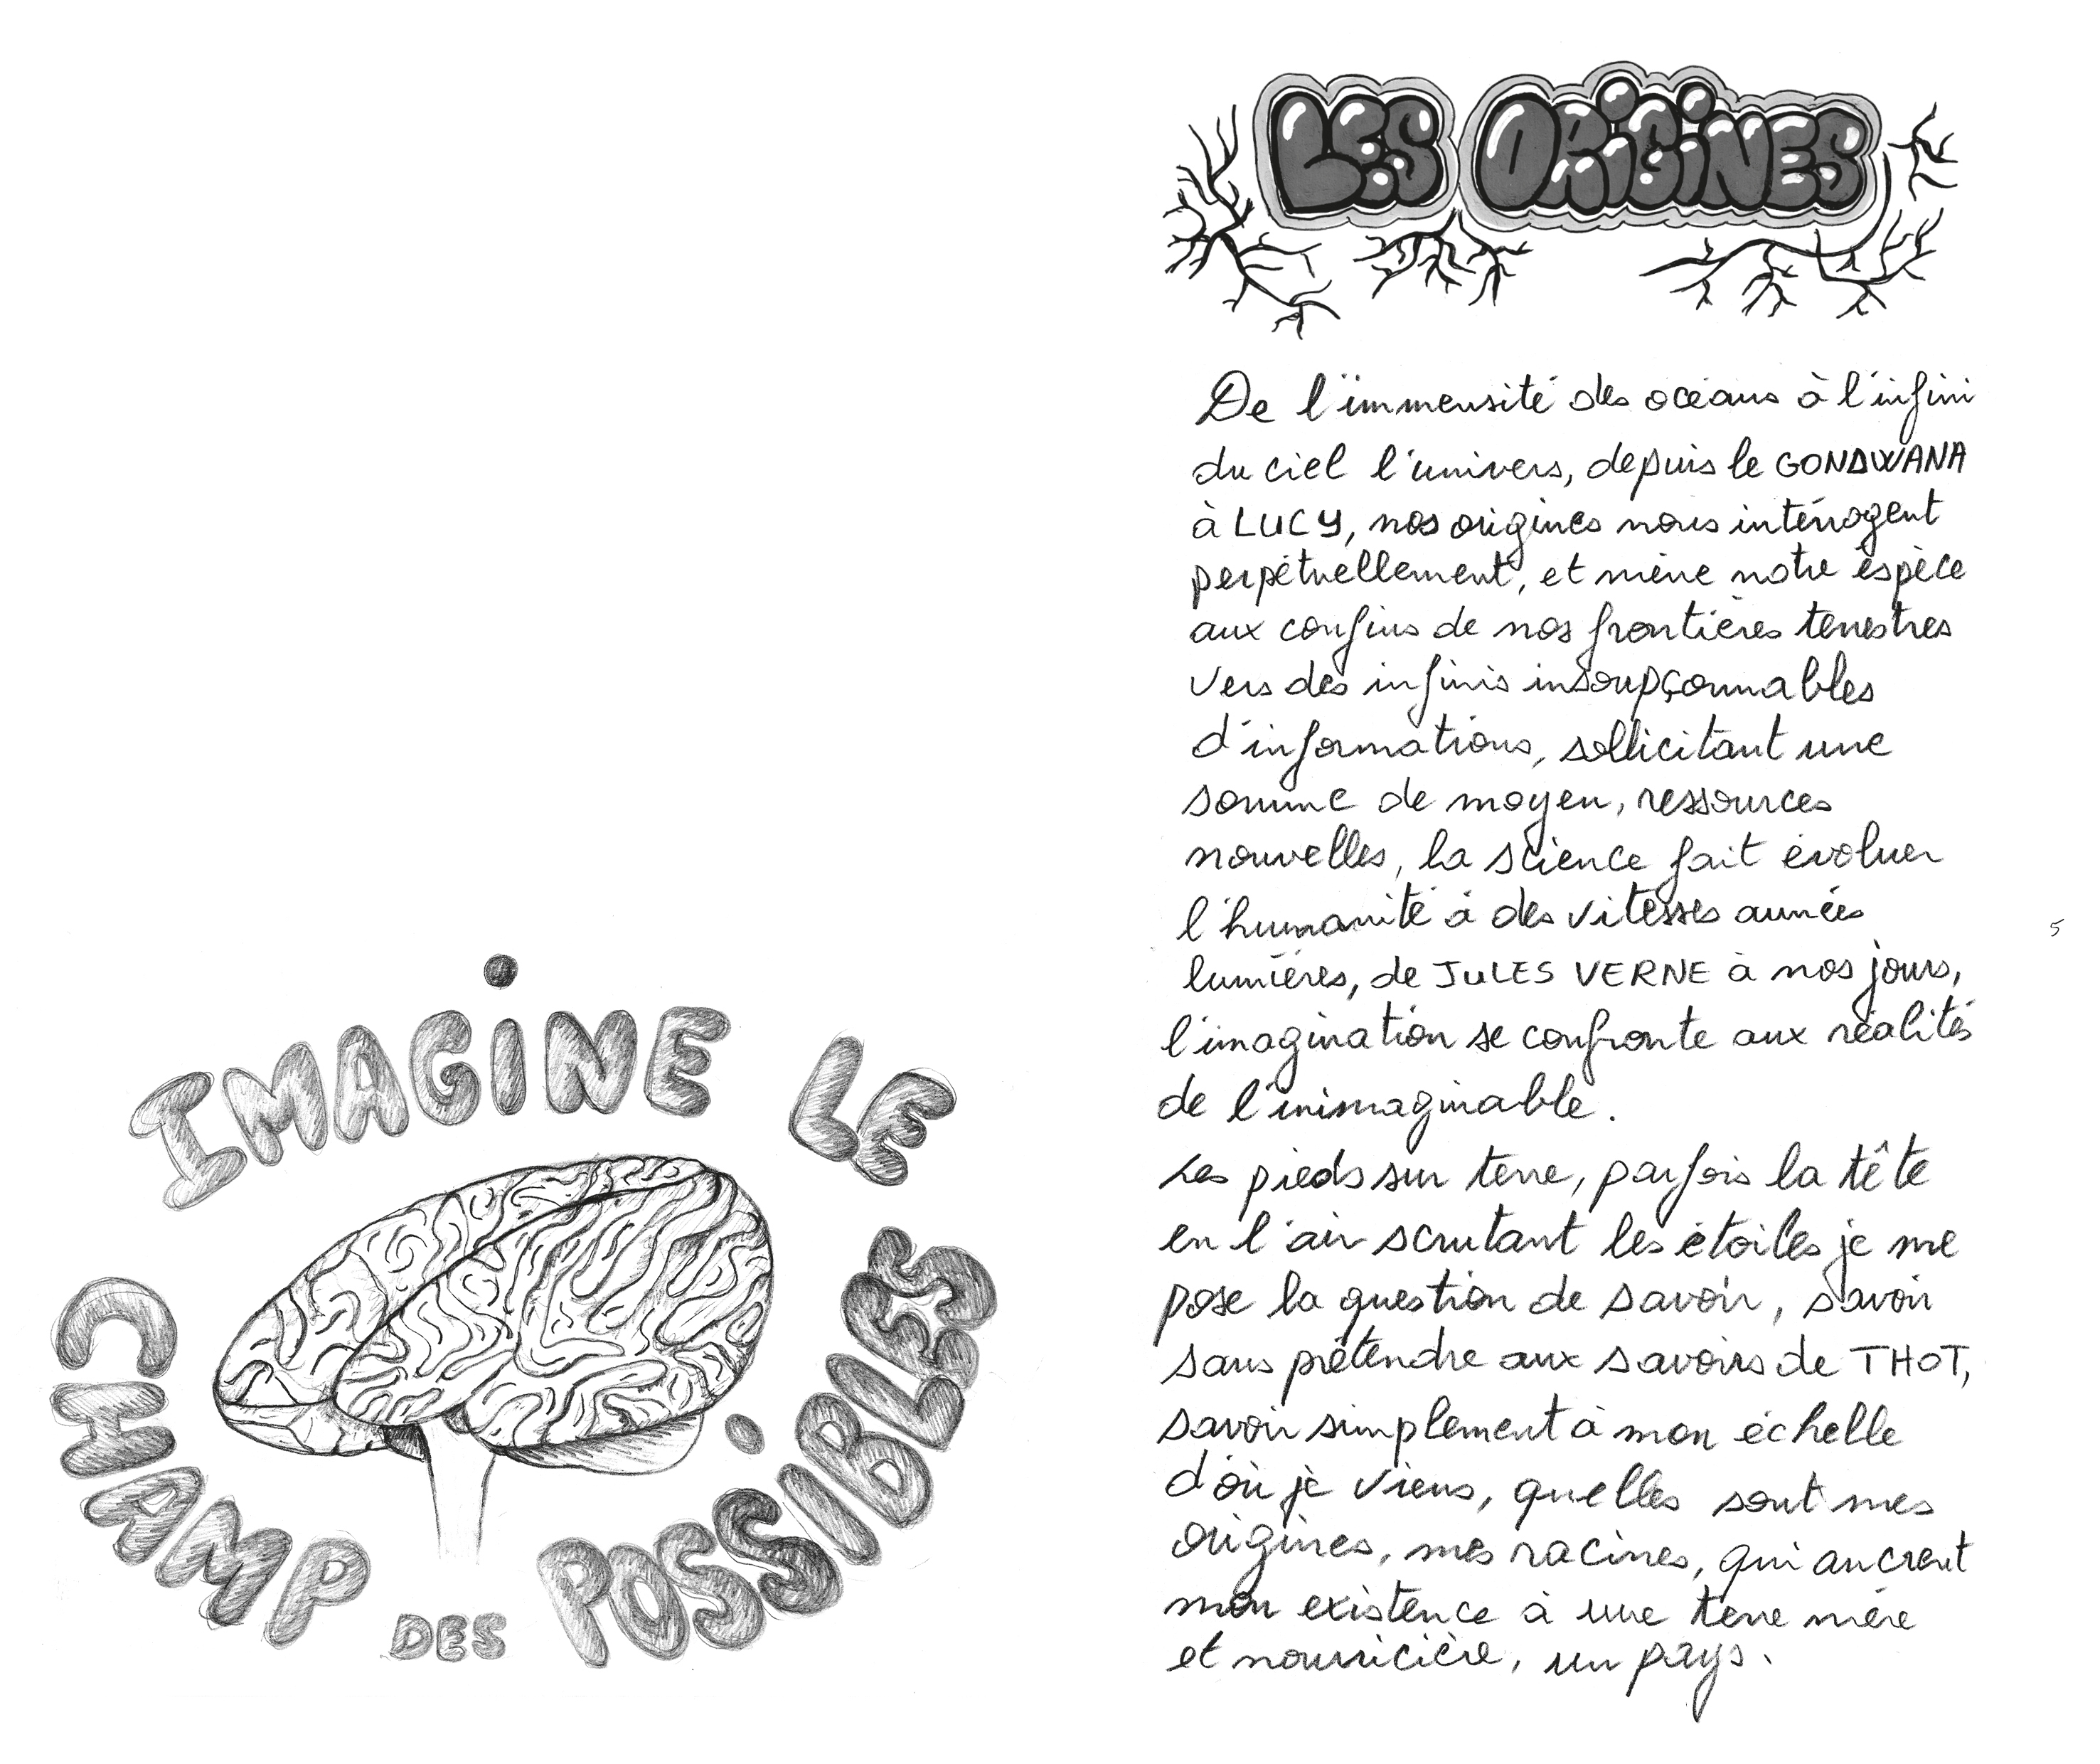 IMAGINE LE
CHAMP DES POSSIBLES
LES ORIGINES
De l'immensité des océans à l'infini
du ciel l'univers, depuis le GONDWANA
à LUCY, nos origines nous intérrogent
perpétuellement, et mène notre éspèce
aux confins de nos frontières terrestres
vers des infinis insoupçonnables
d'informations, sollicitant une
somme de moyen, ressources
nouvelles, la science fait évoluer
l'humanité à des vitesses années
lumières, de JULES VERNE à nos jours,
l'imagination se confronte aux réalités
de l'inimaginable.
Les pieds sur terre, parfois la tête
en l'air scrutant les étoiles je me
pose la question de savoir, savoir
sans prétendre aux savoirs de THOT,
savoir simplement à mon échelle
d'où je viens, quelles sont mes
origines, mes racines, qui ancrent
mon existence à une terre mère
et nourricière, un pays.
5